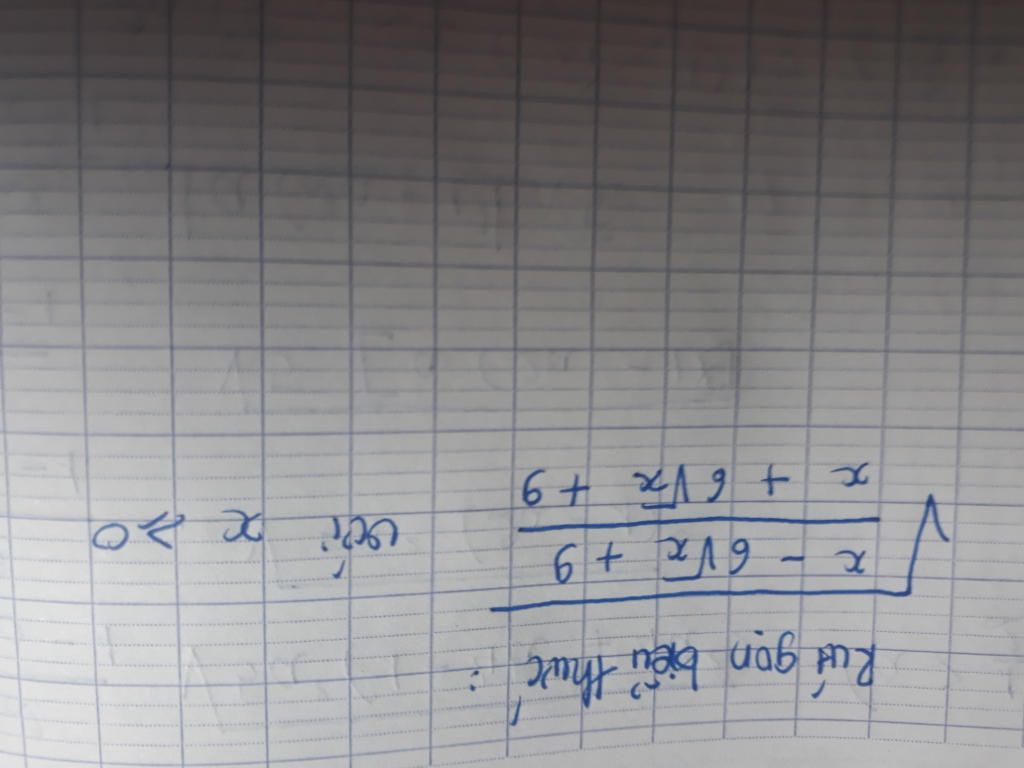 Rút gọn biểu thức :
√((x - 6√x + 9)/(x + 6√x + 9)) với x ⩾ 0